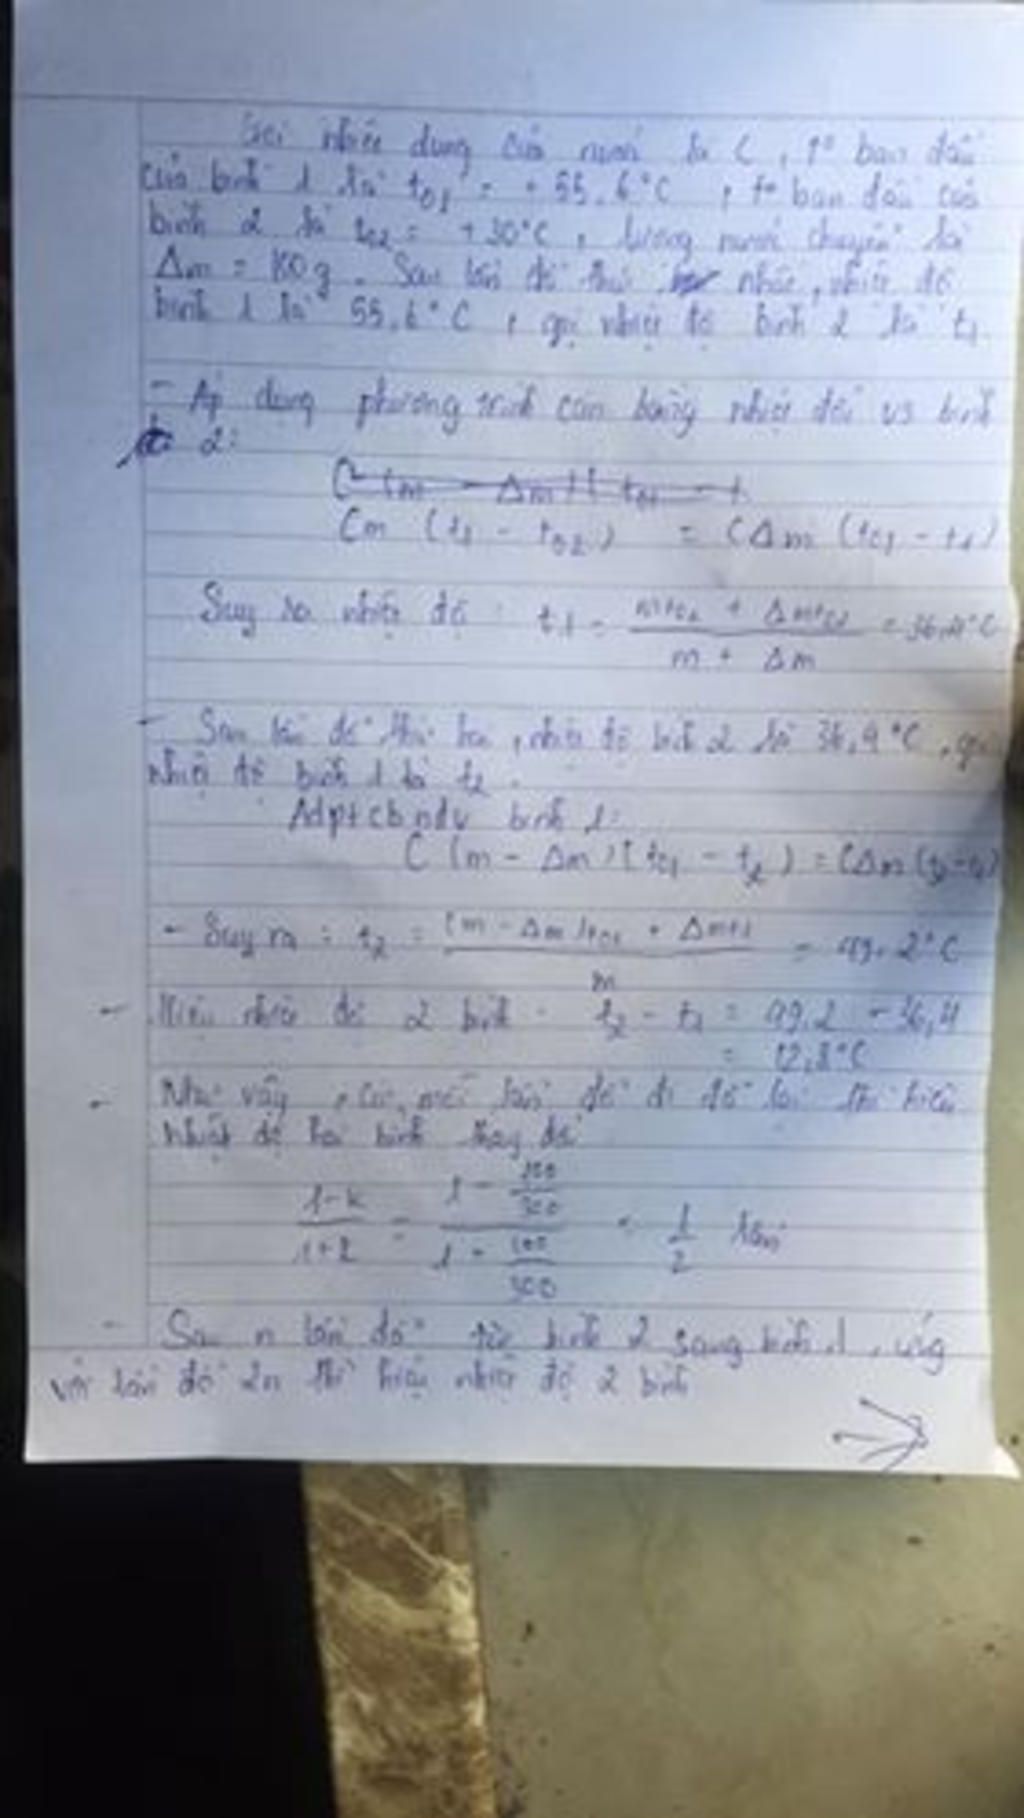 Gọi nhiệt dung của nước là C, t° ban đầu
của bình 1 là t01 = +55,6°C, t° ban đầu của
bình 2 là t02 = +30°C, lượng nước chuyển là
Δm = 100g. Sau lần đổ thứ nhất, nhiệt độ
bình 1 là 55,6°C, gọi nhiệt độ bình 2 là t1
- Áp dụng phương trình cân bằng nhiệt đối vs bình
2:
Cm (t1 - t02) = CΔm (t01 - t1)
Suy ra nhiệt độ: t1 = (mt02 + Δmt01) / (m + Δm) = 36,4°C
- Sau lần đổ thứ hai, nhiệt độ bình 2 là 36,4°C, gọi
nhiệt độ bình 1 là t2.
Adptcbndv bình 1:
C (m - Δm) (t01 - t2) = CΔm (t2 - t1)
- Suy ra: t2 = ((m - Δm)t01 + Δmt1) / m = 49,2°C
- Hiệu nhiệt độ 2 bình: t2 - t1 = 49,2 - 36,4
= 12,8°C
- Như vậy, cứ mỗi lần đổ đi đổ lại thì hiệu
nhiệt độ hai bình thay đổi
(1-k) / (1+k) = (1 - 100/300) / (1 + 100/300) = 1/2 lần
- Sau n lần đổ từ bình 2 sang bình 1, ứng
với lần đổ 2n thì hiệu nhiệt độ 2 bình